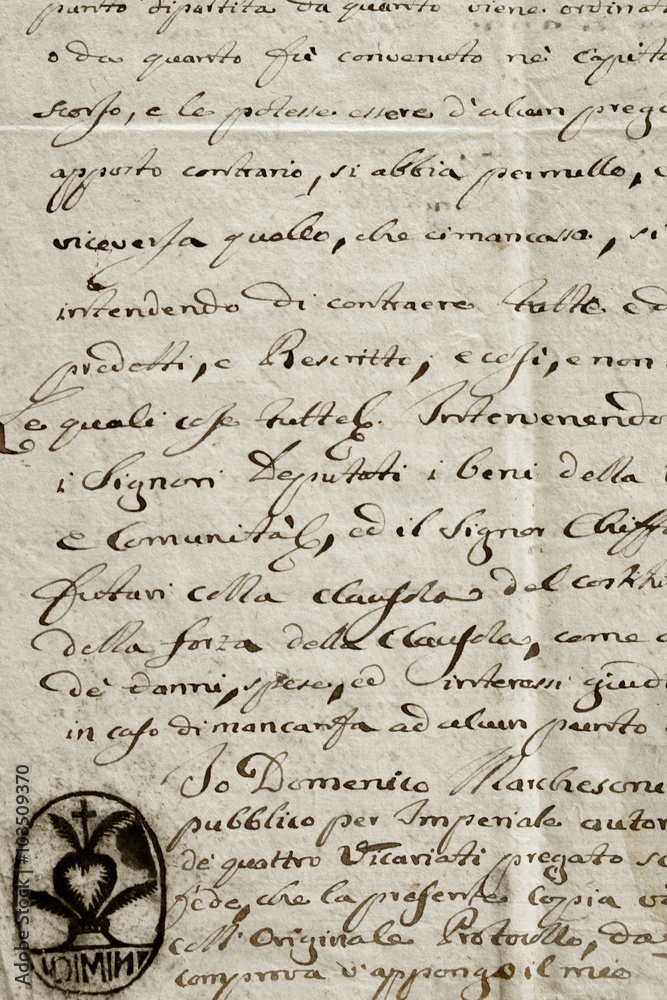 punto dipartita da quanto viene ordinat
o da quanto fù convenuto nè Capito
scorso, e le potesse essere d'alcun preg
apporto contrario, si abbia per nullo,
viceversa quello, che ci mancasse, si
intendendo di contraere tutte e
predetti, e Rescritto, e così, e non
Le quali cose tutte Intervenendo
i Signori Deputati i beni della
e Comunità, ed il Signor
colla Clausola del
della forza della Clausola, come
de' danni, spese, ed interessi giudi
in caso di mancanza ad alcun punto
Io Domenico Marchesoni
pubblico per Imperiale autor
de quattro Vicariati pregato
fede, che la presente Copia
coll' Originale Protocollo, da
comprova v'appongo il mio
Adobe Stock | #103509370